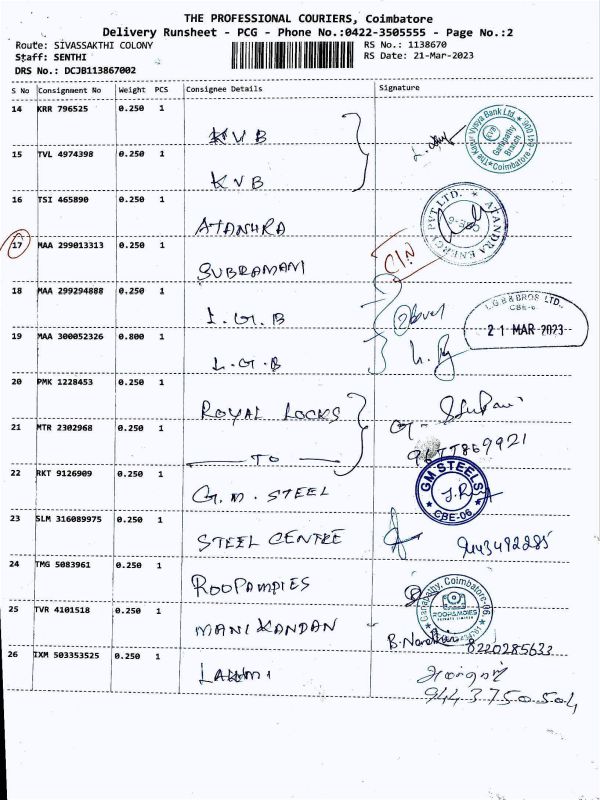 THE PROFESSIONAL COURIERS, Coimbatore
Delivery Runsheet - PCG - Phone No.:0422-3505555 - Page No.:2
Route: SIVASSAKTHI COLONY RS No.: 1138670
Staff: SENTHI RS Date: 21-Mar-2023
DRS No.: DCJB113867002
S No Consignment No Weight PCS Consignee Details Signature
14 KRR 796525 0.250 1 KVB
The Karur Vysya Bank Ltd. KVB Ganapathy Branch Coimbatore
15 TVL 4974398 0.250 1 KVB
16 TSI 465890 0.250 1 ATANHRA
ATANDRA ENERGY PVT LTD. CBE-6
17 MAA 299013313 0.250 1 SUBRAMANI CIN
18 MAA 299294888 0.250 1 L.G.B
L.G.B & BROS LTD., CBE-6. 21 MAR 2023
19 MAA 300052326 0.800 1 L.G.B
20 PMK 1228453 0.250 1 ROYAL LOCKS
21 MTR 2302968 0.250 1 TO 9677869921
22 RKT 9126909 0.250 1 G.M. STEEL
GM STEELS CBE-06
23 SLM 316089975 0.250 1 STEEL CENTRE 9443492285
24 TMG 5083961 0.250 1 ROOPAMPIES
Ganapathy, Coimbatore-06. ROOPAMPIES PRIVATE LIMITED
25 TVR 4101518 0.250 1 MANIKANDAN 8220285633
26 IXM 503353525 0.250 1 LAXMI
9443750504